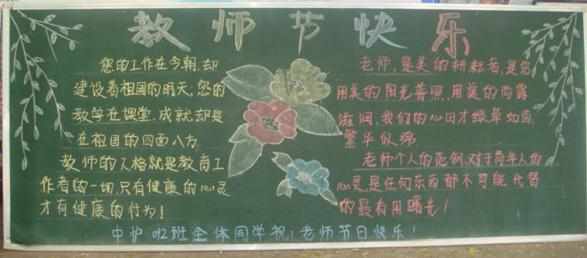 教师节快乐
您的工作在今朝,却
建设着祖国的明天,您的
教学在课堂,成就却是
在祖国的四面八方.
教师的人格就是教育工
作者的一切,只有健康的心灵
才有健康的行为!
老师,是美的耕耘者,是您
用美的阳光普照,用美的雨露
滋润,我们的心田才绿草如茵,
繁华似锦
老师个人的范例,对于青年人的
心灵,是任何东西都不可能代替
的最有用曙光!
中护 班全体同学祝:老师节日快乐!